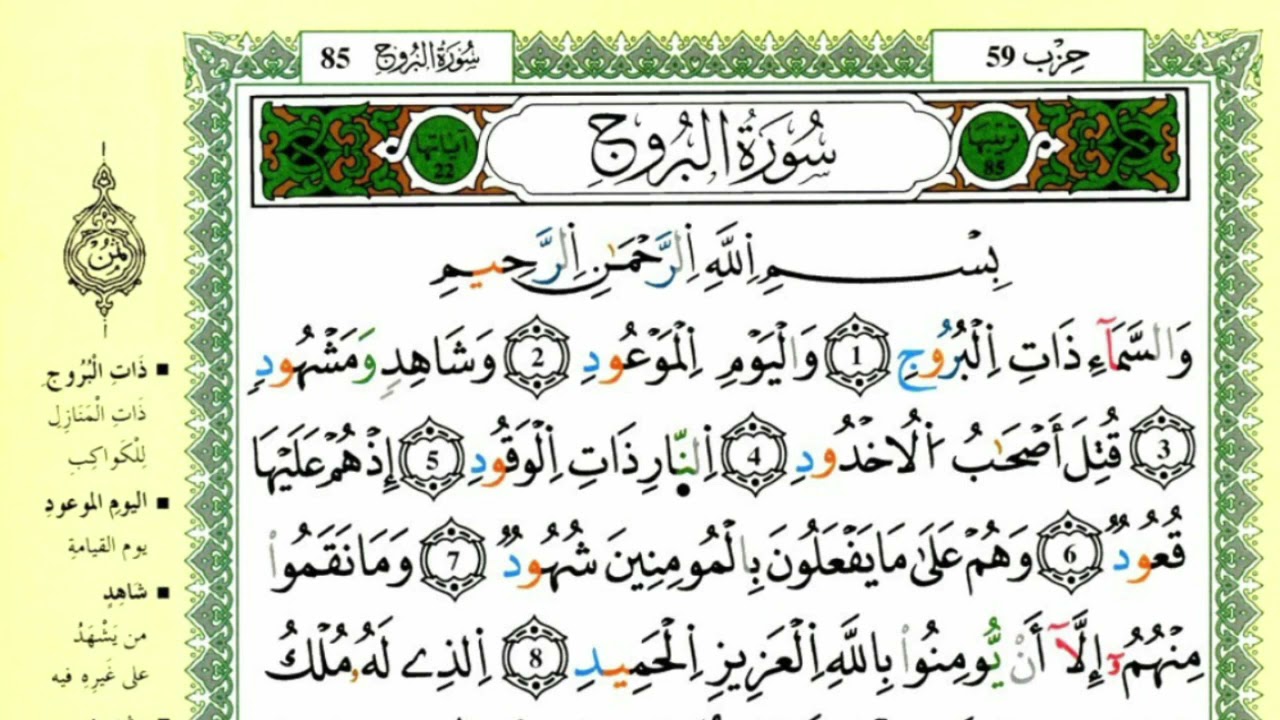 حِزْب 59
سُورَةُ الْبُرُوجِ 85
تَرتيبُها 85
سُورَةُ الْبُرُوجِ
ءاياتها 22
بِسْمِ اِللَّهِ اِلرَّحْمَٰنِ اِلرَّحِيمِ
وَالسَّمَآءِ ذَاتِ اِلْبُرُوجِ 1 وَالْيَوْمِ اِلْمَوْعُودِ 2 وَشَاهِدٍ وَمَشْهُودٍ
3 قُتِلَ أَصْحَٰبُ اُلُاخْدُودِ 4 اِلنّ۪ارِ ذَاتِ اِلْوَقُودِ 5 إِذْ هُمْ عَلَيْهَا
قُعُودٌ 6 وَهُمْ عَلَىٰ مَا يَفْعَلُونَ بِالْمُومِنِينَ شُهُودٌ 7 وَمَا نَقَمُواْ
مِنْهُمُۥٓ إِلَّآ أَنْ يُّومِنُواْ بِاللَّهِ اِلْعَزِيزِ اِلْحَمِيدِ 8 اِلذِے لَهُۥ مُلْكُ
ثمن
■ ذَاتِ الْبُرُوجِ
ذَاتِ الْمَنَازِلِ
لِلْكَواكِبِ
■ اليومِ الموعودِ
يوم القيامةِ
■ شَاهِدٍ
من يَشْهَدُ
على غَيرِهِ فيه